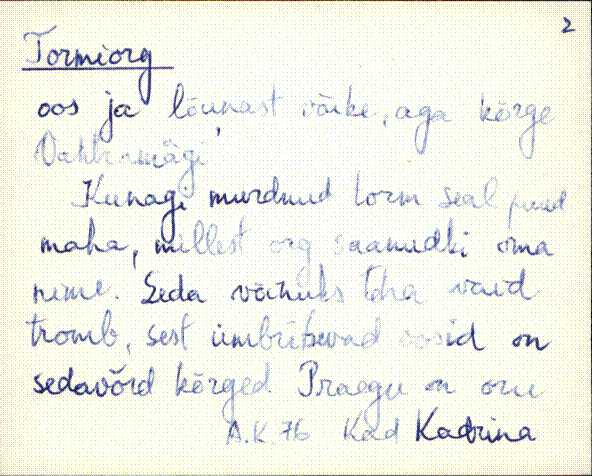 2
Tormiorg
oos ja lõunast väike, aga kõrge
Vahtrimägi
Kunagi murdnud torm seal puud
maha, millest org saanudki oma
nime. Seda võinuks teha vaid
tromb, sest ümbritsevad oosid on
sedavõrd kõrged. Praegu on oru
A.K. 76 Kad Kadrina